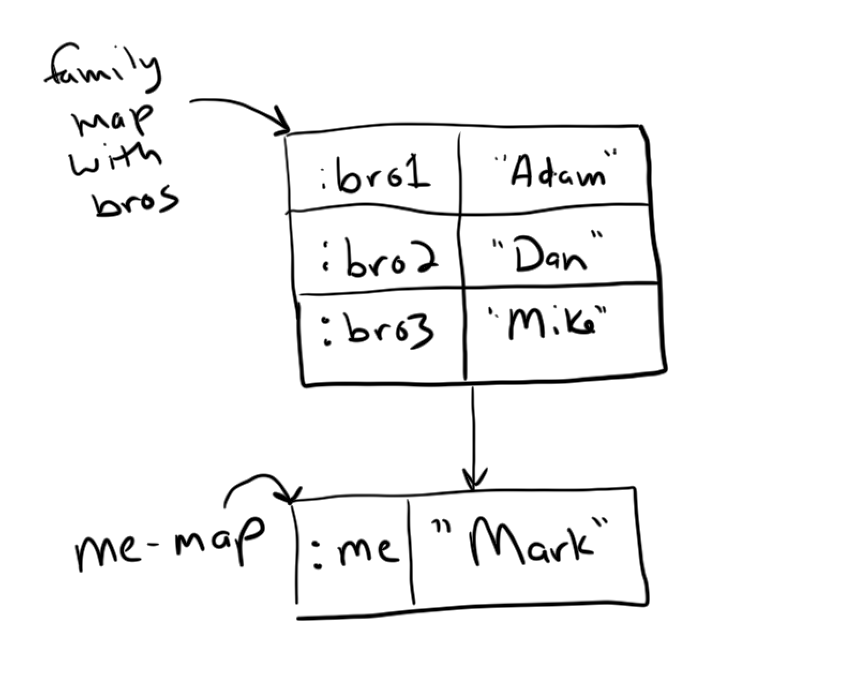 family
map
with
bros
:bro1 "Adam"
:bro2 "Dan"
:bro3 "Mike"
me-map
:me "Mark"